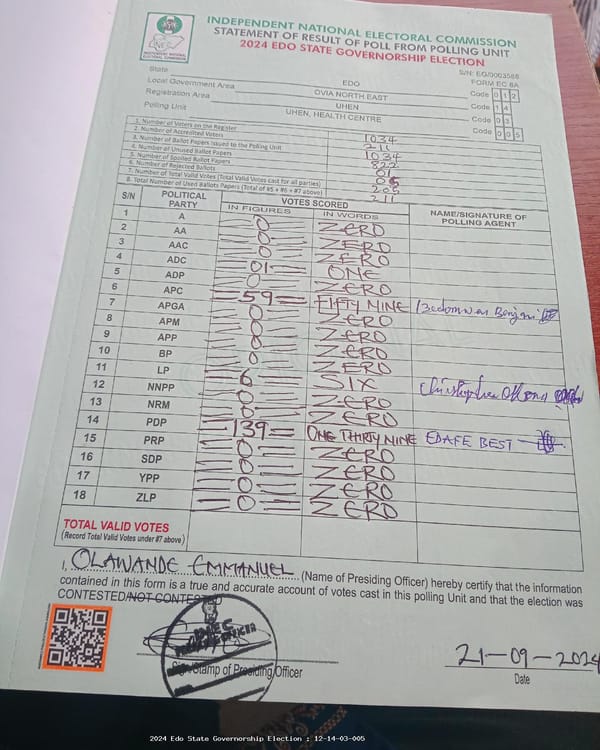 INDEPENDENT NATIONAL ELECTORAL COMMISSION
STATEMENT OF RESULT OF POLL FROM POLLING UNIT
2024 EDO STATE GOVERNORSHIP ELECTION
S/N: EG/0003588
FORM EC 8A
State EDO Code 0 1 2
Local Government Area OVIA NORTH EAST Code 1 4
Registration Area UHEN Code 0 3
Polling Unit UHEN, HEALTH CENTRE Code 0 0 5
1. Number of Voters on the Register 1034
2. Number of Accredited Voters 211
3. Number of Ballot Papers Issued to the Polling Unit 1034
4. Number of Unused Ballot Papers
5. Number of Spoiled Ballot Papers 01
6. Number of Rejected Ballots
7. Number of Total Valid Votes (Total Valid Votes cast for all parties) 205
8. Total Number of Used Ballots Papers (Total of #5 + #6 + #7 above) 211
S/N POLITICAL PARTY VOTES SCORED NAME/SIGNATURE OF POLLING AGENT
IN FIGURES IN WORDS
1 A 0 ZERO
2 AA 0 ZERO
3 AAC 0 ZERO
4 ADC 01 ONE
5 ADP 0 ZERO
6 APC 59 FIFTY NINE
7 APGA 0 ZERO
8 APM 0 ZERO
9 APP 0 ZERO
10 BP 0 ZERO
11 LP 6 SIX
12 NNPP 0 ZERO
13 NRM 0 ZERO
14 PDP 139 ONE THIRTY NINE EDAFE BEST
15 PRP 0 ZERO
16 SDP 0 ZERO
17 YPP 0 ZERO
18 ZLP 0 ZERO
TOTAL VALID VOTES
(Record Total Valid Votes under #7 above)
I, OLAWANDE EMMANUEL (Name of Presiding Officer) hereby certify that the information
contained in this form is a true and accurate account of votes cast in this polling Unit and that the election was
CONTESTED/NOT CONTESTED
Sign/Stamp of Presiding Officer
21-09-2024
Date
2024 Edo State Governorship Election : 12-14-03-005